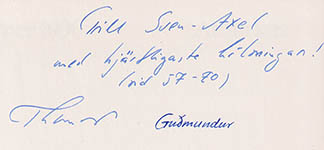 Till Sven-Axel
med hjärtligaste hälsningar!
(sid 57-70)
Thomas Guðmundur